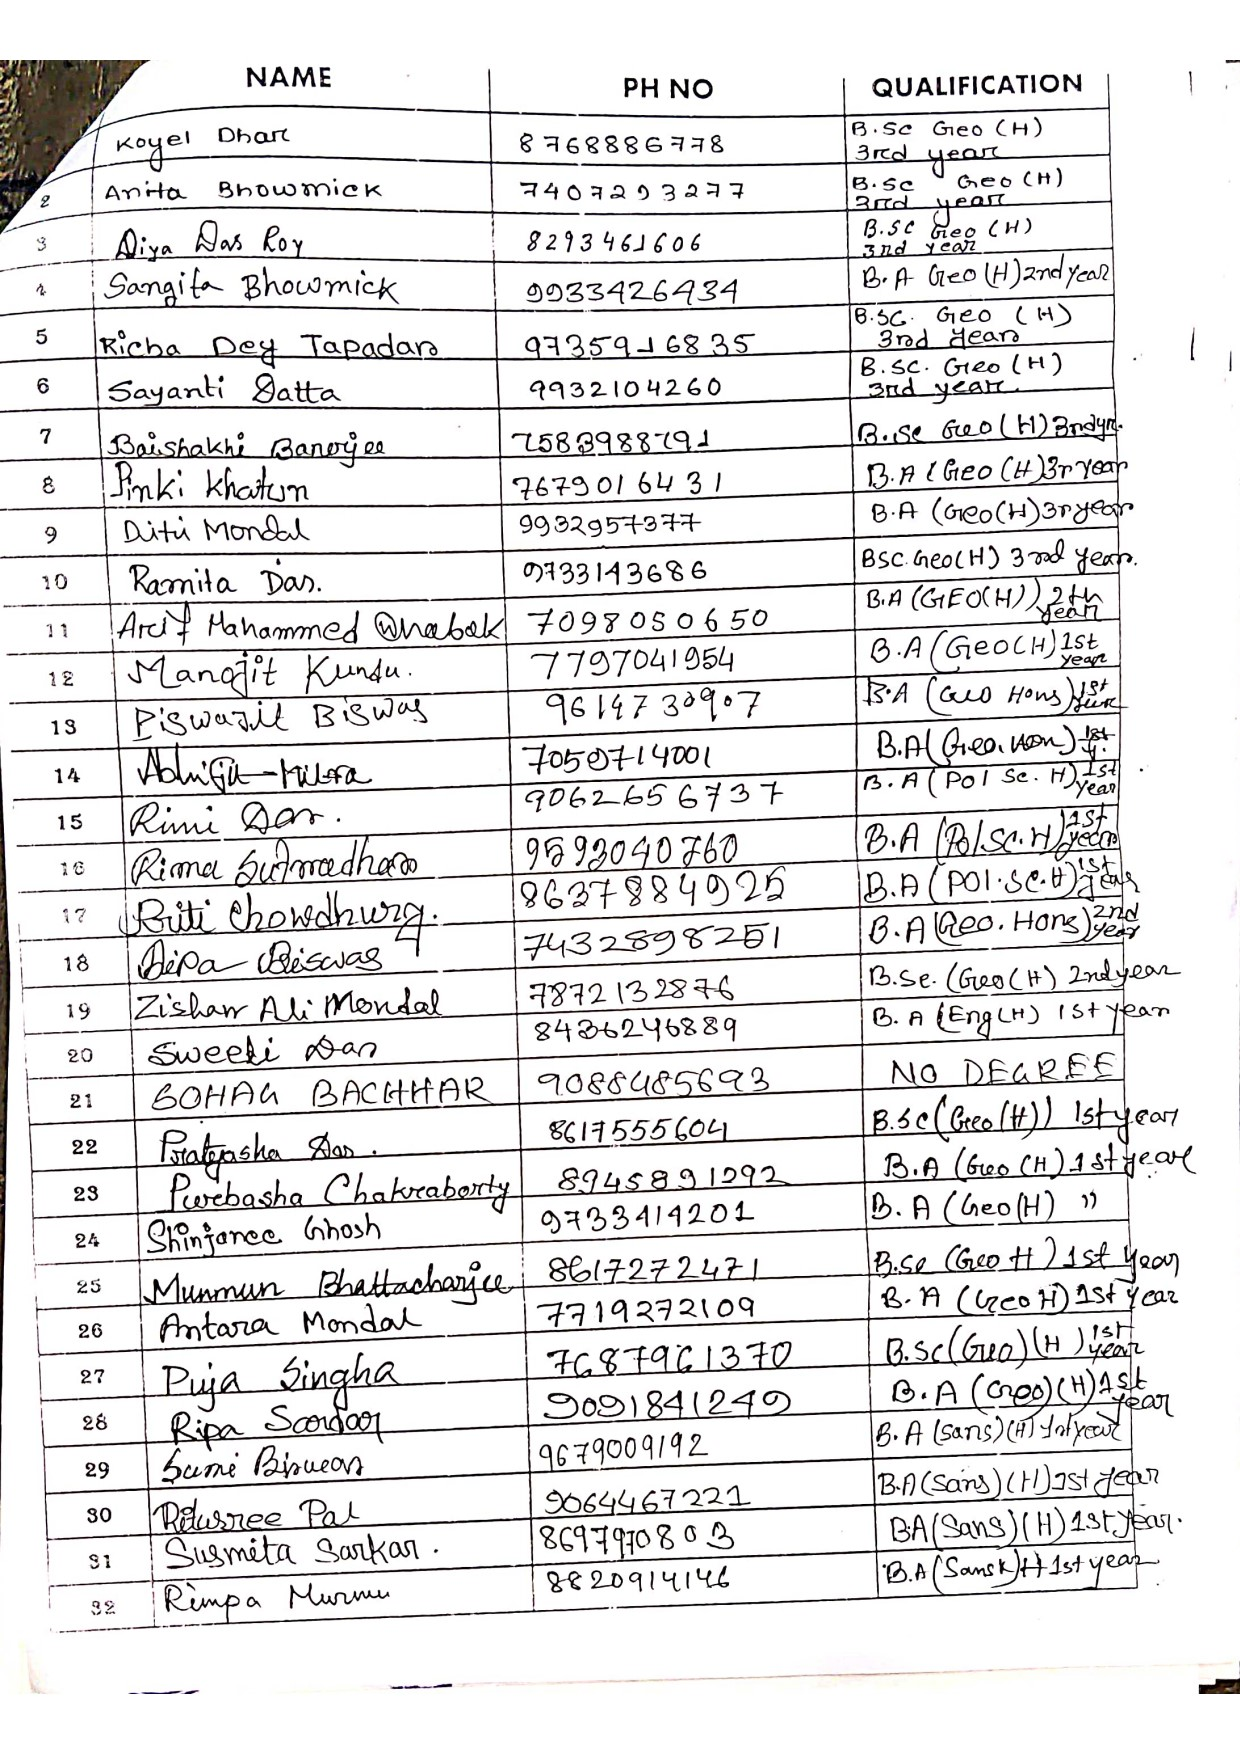 NAME PH NO QUALIFICATION
Koyel Dhar 8768886778 B.Sc Geo (H)
3rd year
2 Anita Bhowmick 7407293277 B.Sc Geo (H)
3rd year
3 Diya Das Roy 8293461606 B.Sc Geo (H)
3rd year
4 Sangita Bhowmick 9933426434 B.A Geo (H) 2nd year
5 Richa Dey Tapadar 9735916835 B.SC. Geo (H)
3rd year
6 Sayanti Datta 9932104260 B.Sc. Geo (H)
3rd year
7 Baishakhi Banerjee 7583988791 B.Sc Geo (H) 3rdyr.
8 Pinki Khatun 7679016431 B.A (Geo (H) 3r year
9 Ditii Mondal 9932957377 B.A (Geo(H) 3r year
10 Ramita Das. 9733143686 BSC. Geo(H) 3rd year.
11 Arif Mahammed 7098050650 B.A (GEO(H)) 2th
year
12 Manojit Kundu. 7797041954 B.A (Geo(H) 1st
year
13 Biswajit Biswas B.A (Geo Hons) 1st
14 7050714001 B.A (Geo. Hon) 1st
Y.
15 Rimi Das. 9062656737 B.A (Pol Sc. H) 1st
year
16 Rima Sutradhar 9593040760 B.A (Pol.Sc.H) 1st
year
17 Briti Chowdhury. 8637884925 B.A (POl.SC.H) 1st
year
18 Dipa Biswas 7432898251 B.A (Geo. Hons) 2nd
year
19 Zishan Ali Mondal 7872132876 B.Sc. (Geo(H) 2nd year
20 Sweeti Das 8436246889 B.A (Eng(H) 1st year
21 SOHAG BACHHAR 9088485693 NO DEGREE
22 Pratyasha Das. 8617555604 B.Sc (Geo(H)) 1st year
23 Purebasha Chakraborty 8945891292 B.A (Geo (H) 1st year
24 Shinjanee Ghosh 9733414201 B.A (Geo(H) "
25 Munmun Bhattacharjee 8617272471 B.Sc (Geo H) 1st year
26 Antara Mondal 7719272109 B.A (Geo H) 1st year
27 Puja Singha 7687961370 B.Sc (Geo) (H) 1st
year
28 Ripa Sardar 9091841249 B.A (Geo) (H) 1st
year
29 Sumi Biswas 9679009192 B.A (Sans) (H) 1st year
30 Ritusree Pal 9064467221 B.A (Sans) (H) 1st year
31 Susmita Sarkar. 8697970803 B.A (Sans) (H) 1st year.
32 Rimpa Murmu 8820914146 B.A (Sansk) H 1st year